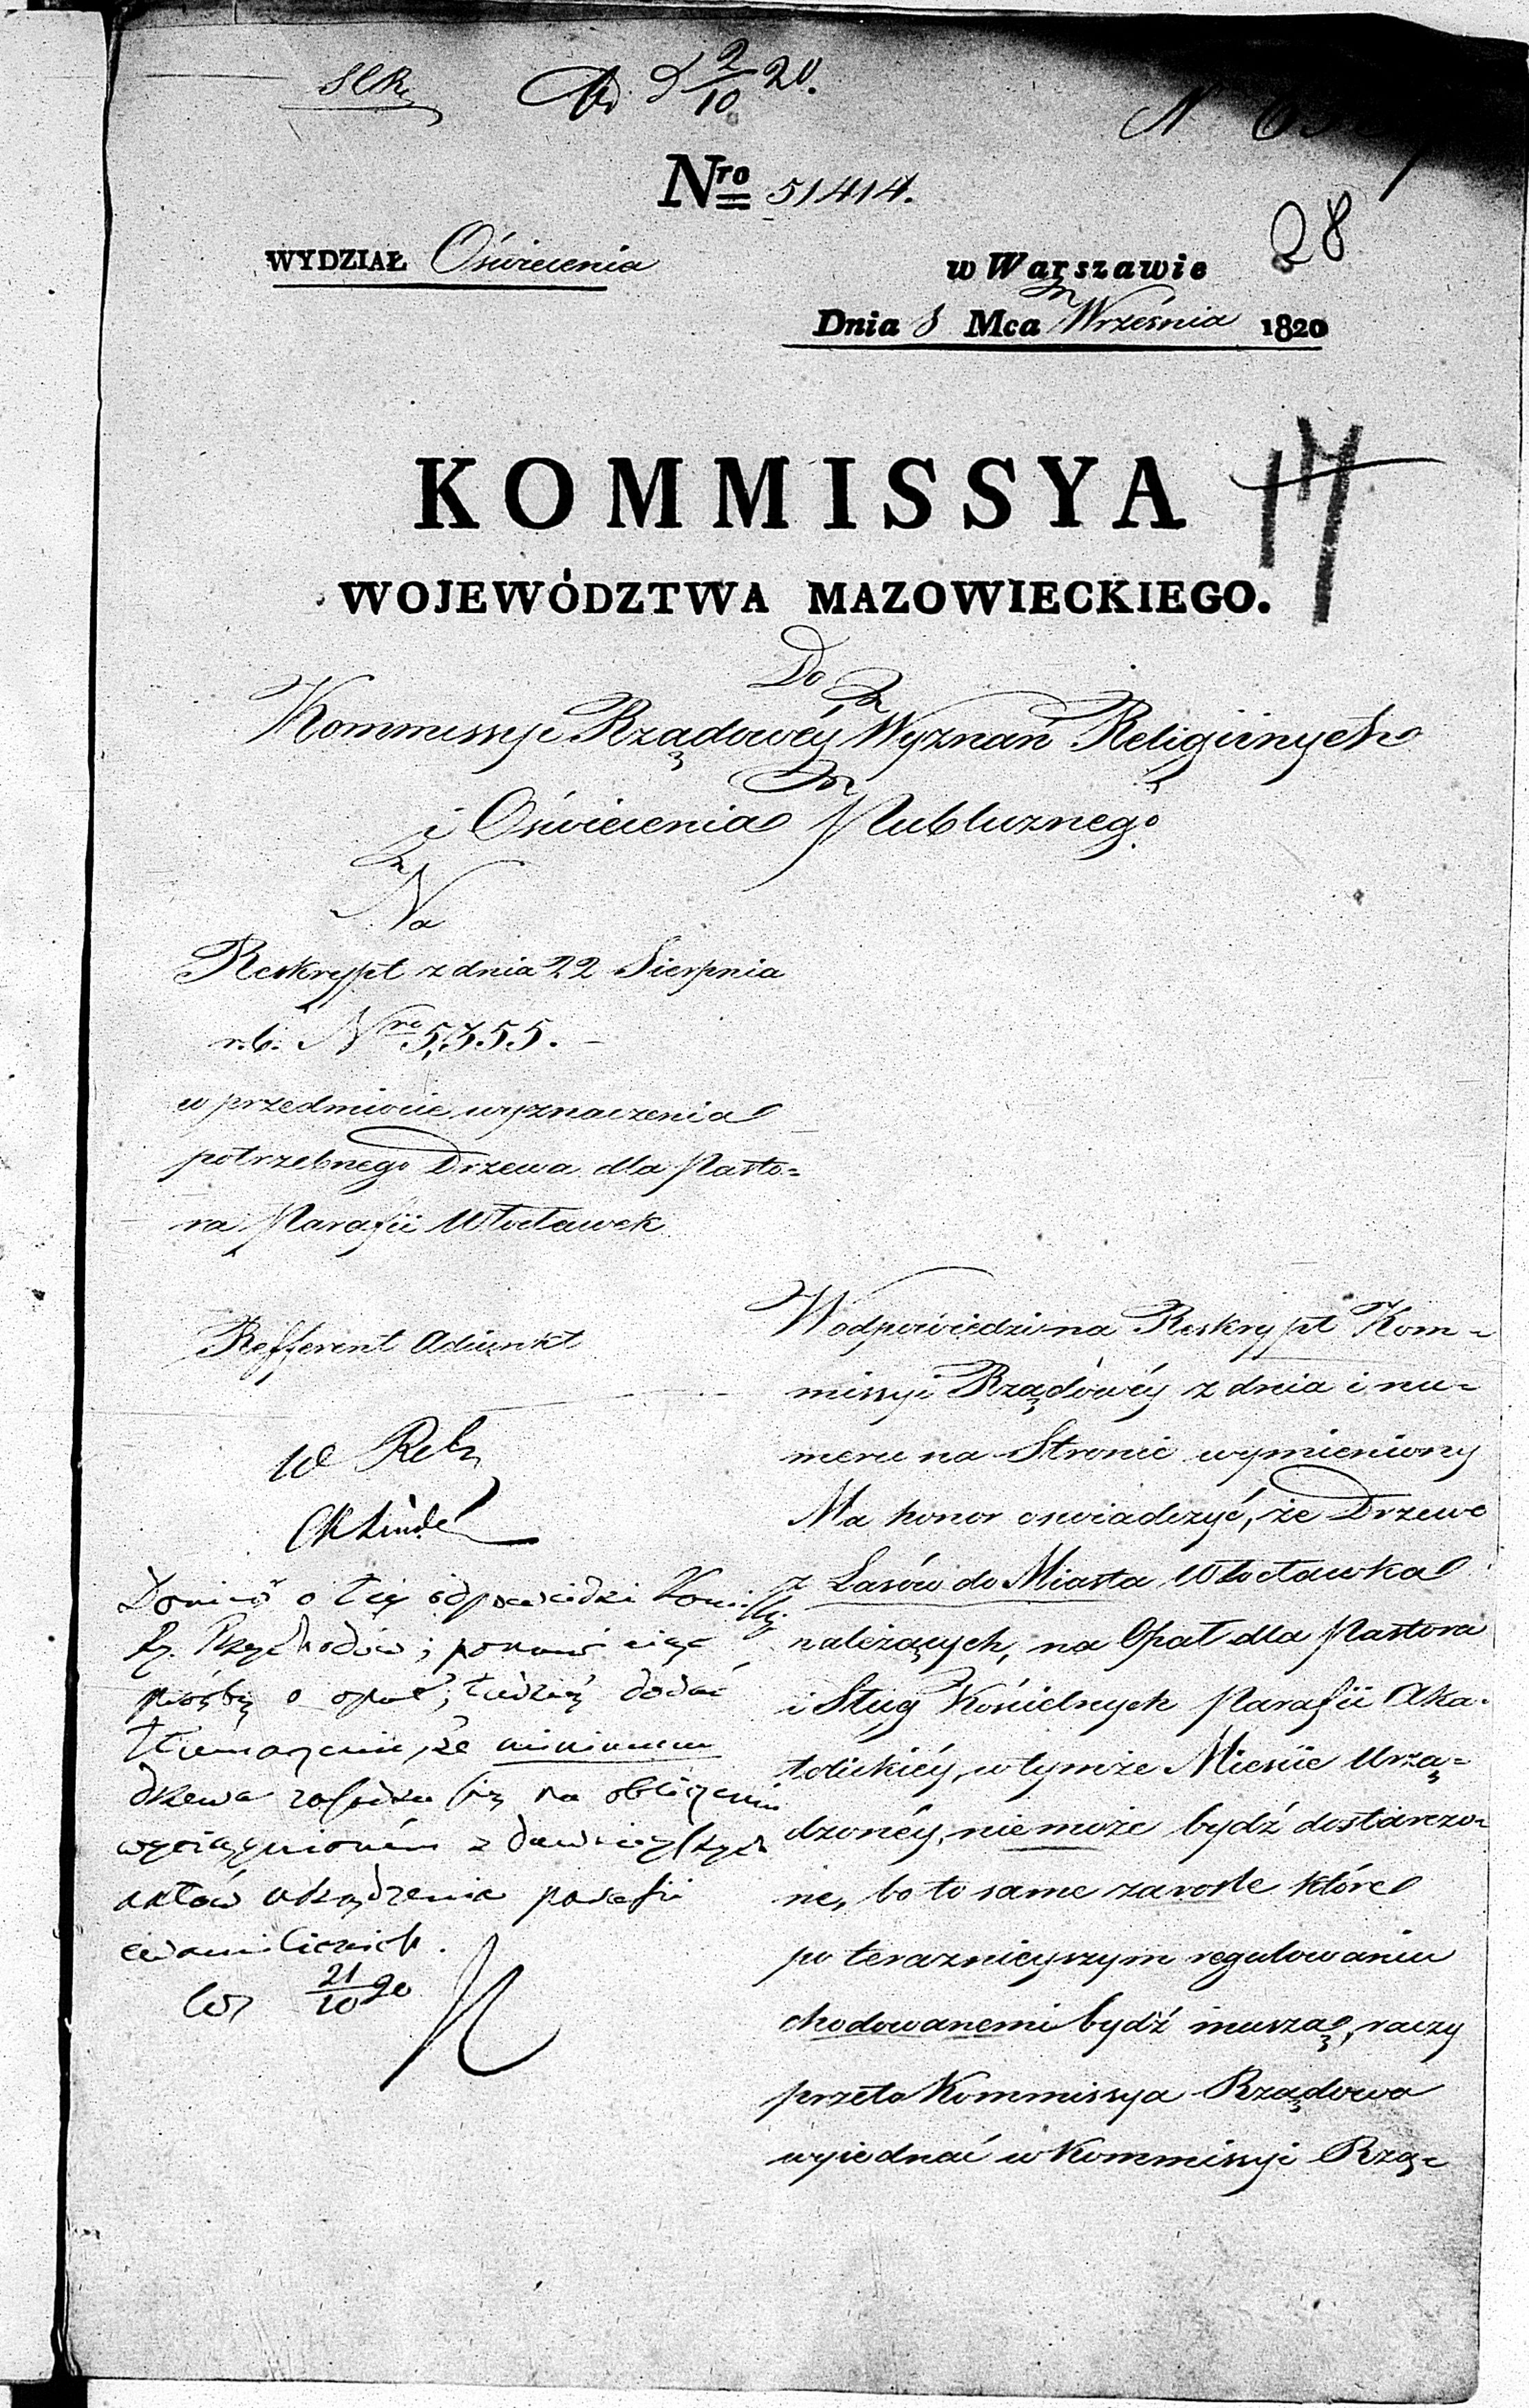 d 2/10 20.
N
Nro 51414.
28
WYDZIAŁ Oświecenia
w Warszawie
Dnia 8 Mca Września 1820
KOMMISSYA
17
WOJEWÓDZTWA MAZOWIECKIEGO.
Do
Kommissyi Rządowéy Wyznań Religiinych
i Oświecenia Publicznego.
Na
Reskrypt z dnia 22 Sierpnia
r.b. Nro 5,355.
w przedmiocie wyznaczenia
potrzebnego Drzewa dla Pasto=
ra Parafii Włocławek
Refferent Adiunkt
Linde
Donieść o tey odpowiedzi Kommissyi
Rz. Przychodów; ponowić więc
prośbę o opał; tudzież dodać
tłumaczenie, że minimum
drzewa zasadza się na obliczeniu
wyciągnioném z dawnieyszych
aktów urządzenia parafii
ewanielickich.
21/10 20
W odpowiedzi na Reskrypt Kom=
missyi Rządowéy z dnia i nu=
meru na Stronie wymieniony
Ma honor oświadczyć, że Drzewo
z Lasów do Miasta Włocławka
należących, na Opał dla Pastora
i Sług Kościelnych Parafii Aka=
tolickiéy, w tymże Mieście Urzą=
dzonéy, niemoże bydź dostarczo=
ne, bo to same zarosle które
po teraznieyszym regulowaniu
chodowanemi bydź muszą, raczy
przeto Kommissya Rządowa
wyiednać u Kommissyi Rzą=